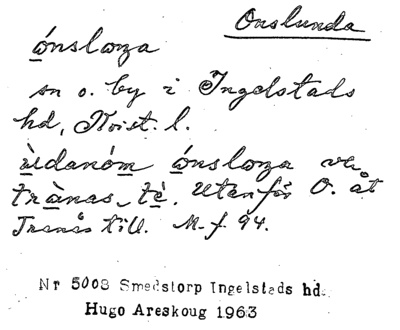 Onslunda
ónslωza
sn o. by i Ingelstads
hd, Krist. l.
ùdanóm ónslωza
trànas, tè. Utanför O. åt
Tranås till. M. f. 94.
Nr 5008 Smedstorp Ingelstads hd.
Hugo Areskoug 1963